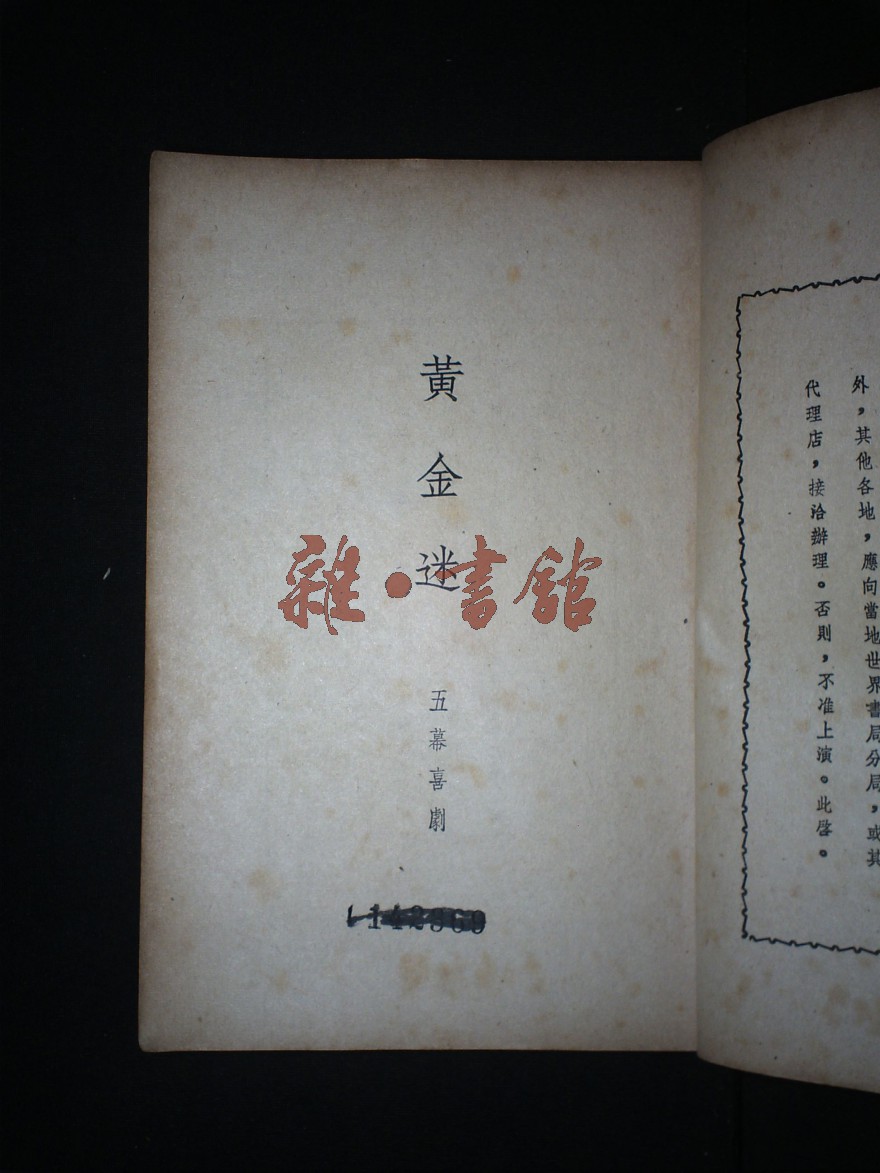 黃金迷
五幕喜劇
雜·書館
外，其他各地，應向當地世界書局分局，或其
代理店，接洽辦理。否則，不准上演。此啓。